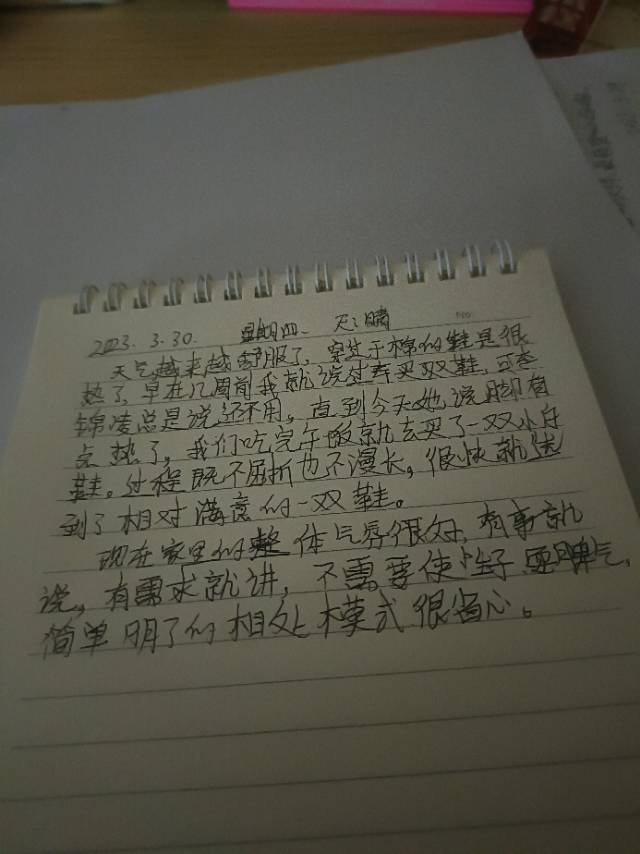 No
2023.3.30. 星期四. 天:晴
天气越来越舒服了, 穿 棉的鞋是很
热了, 早在几周前我就说 买双鞋,
锦凌总是说还不用, 直到今天她说脚有
点热了, 我们吃完午饭就去买了一双小白
鞋。过程既不屈折也不漫长, 很快就选
到了相对满意的一双鞋。
现在家里的整体气氛很好, 有事就
说, 有需求就讲, 不需要使性子 脾气,
简单明了的相处模式很省心。